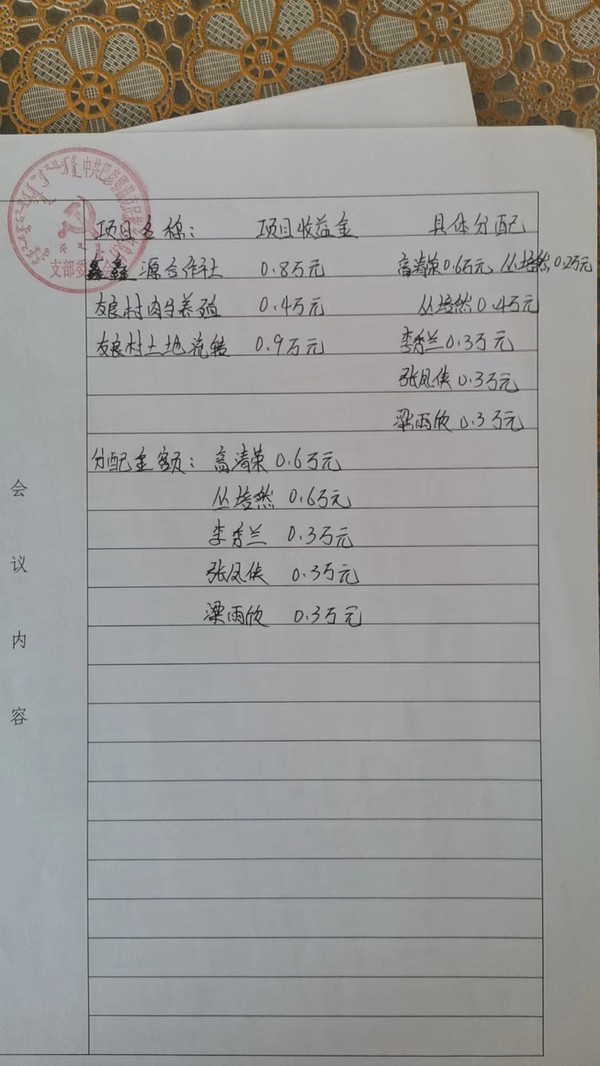 项目名称: 项目收益金 具体分配
鑫鑫源合作社 0.8万元 高清荣0.6万元、丛培然0.2万元
友良村肉牛养殖 0.4万元 丛培然0.4万元
友良村土地流转 0.9万元 李秀兰0.3万元
张凤侠0.3万元
梁雨欣0.3万元
分配金额: 高清荣0.6万元
丛培然 0.6万元
李秀兰 0.3万元
张凤侠 0.3万元
梁雨欣 0.3万元
会
议
内
容
中共巴彦
支部委